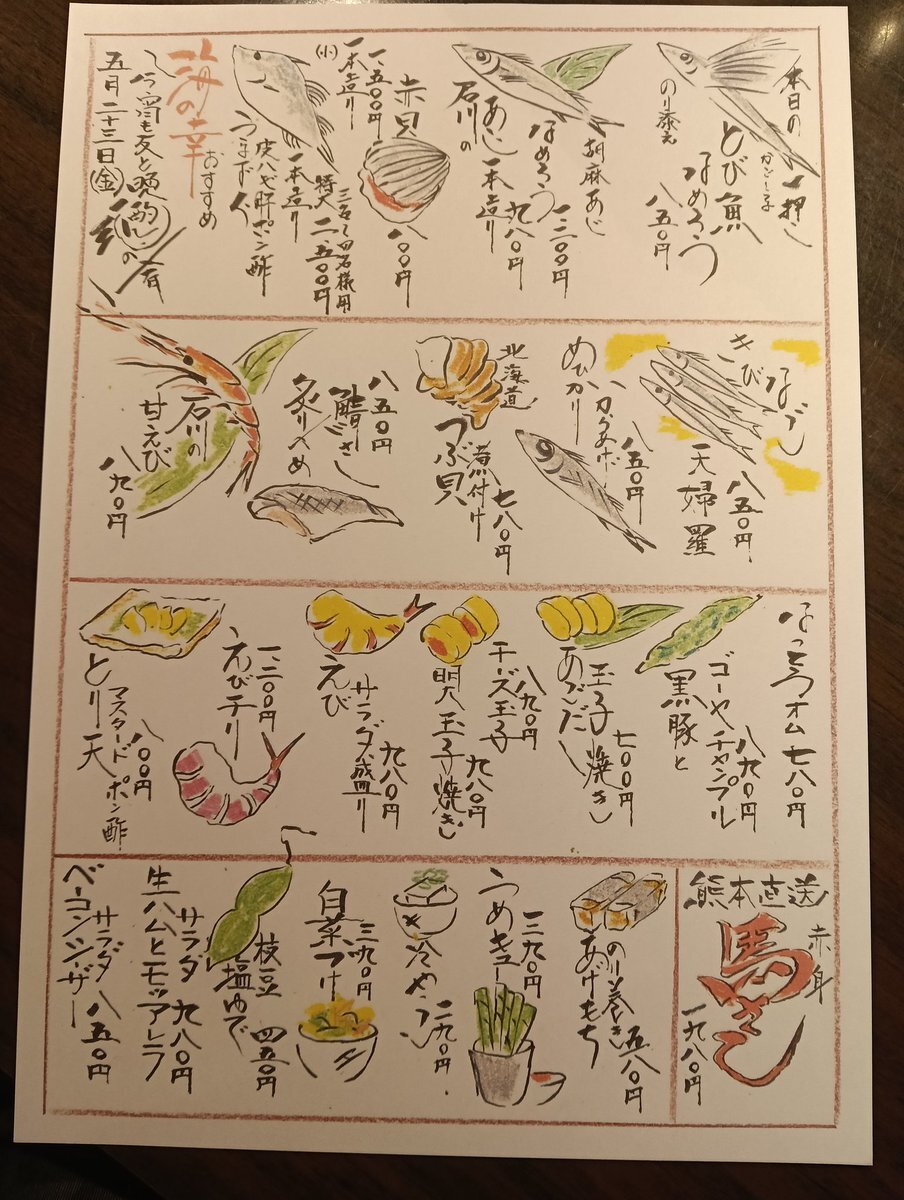 本日の一押し
かごしま
とび魚
なめろう
のり添え
八五〇円
胡麻あじ
なめろう
一、三〇〇円
石川の
あじ一本造り
九八〇円
赤貝
八〇〇円
一、五〇〇円
(小)一本造り
三名〜四名様用
特大 二、五〇〇円
一本造り
皮ハギ肝ポン酢
海の幸
おすすめ
今宵も友と晩酌
五月二十三日(金)
きびなご
天婦羅
八五〇円
めひかり
八五〇円
北海道
つぶ貝
煮付け
七八〇円
八五〇円
鯖さし
炙りべめ
石川の
甘えび
八九〇円
なっとうオム七八〇円
ゴーヤチャンプル
八九〇円
黒豚と
玉子焼き
七〇〇円
あごだし
チーズ玉子
八九〇円
明太玉子焼き
九八〇円
えび
サラダ盛り
九八〇円
一、二〇〇円
えびチリ
とり天
マスタードポン酢
八〇〇円
熊本直送
赤身
馬さし
一九八〇円
のり巻き
あげもち
五八〇円
うめキュー
三九〇円
冷やっこ
二九〇円
白菜づけ
三九〇円
枝豆
塩ゆで
四五〇円
生ハムとモッツァレラ
サラダ 九八〇円
ベーコンシーザー
サラダ 八五〇円